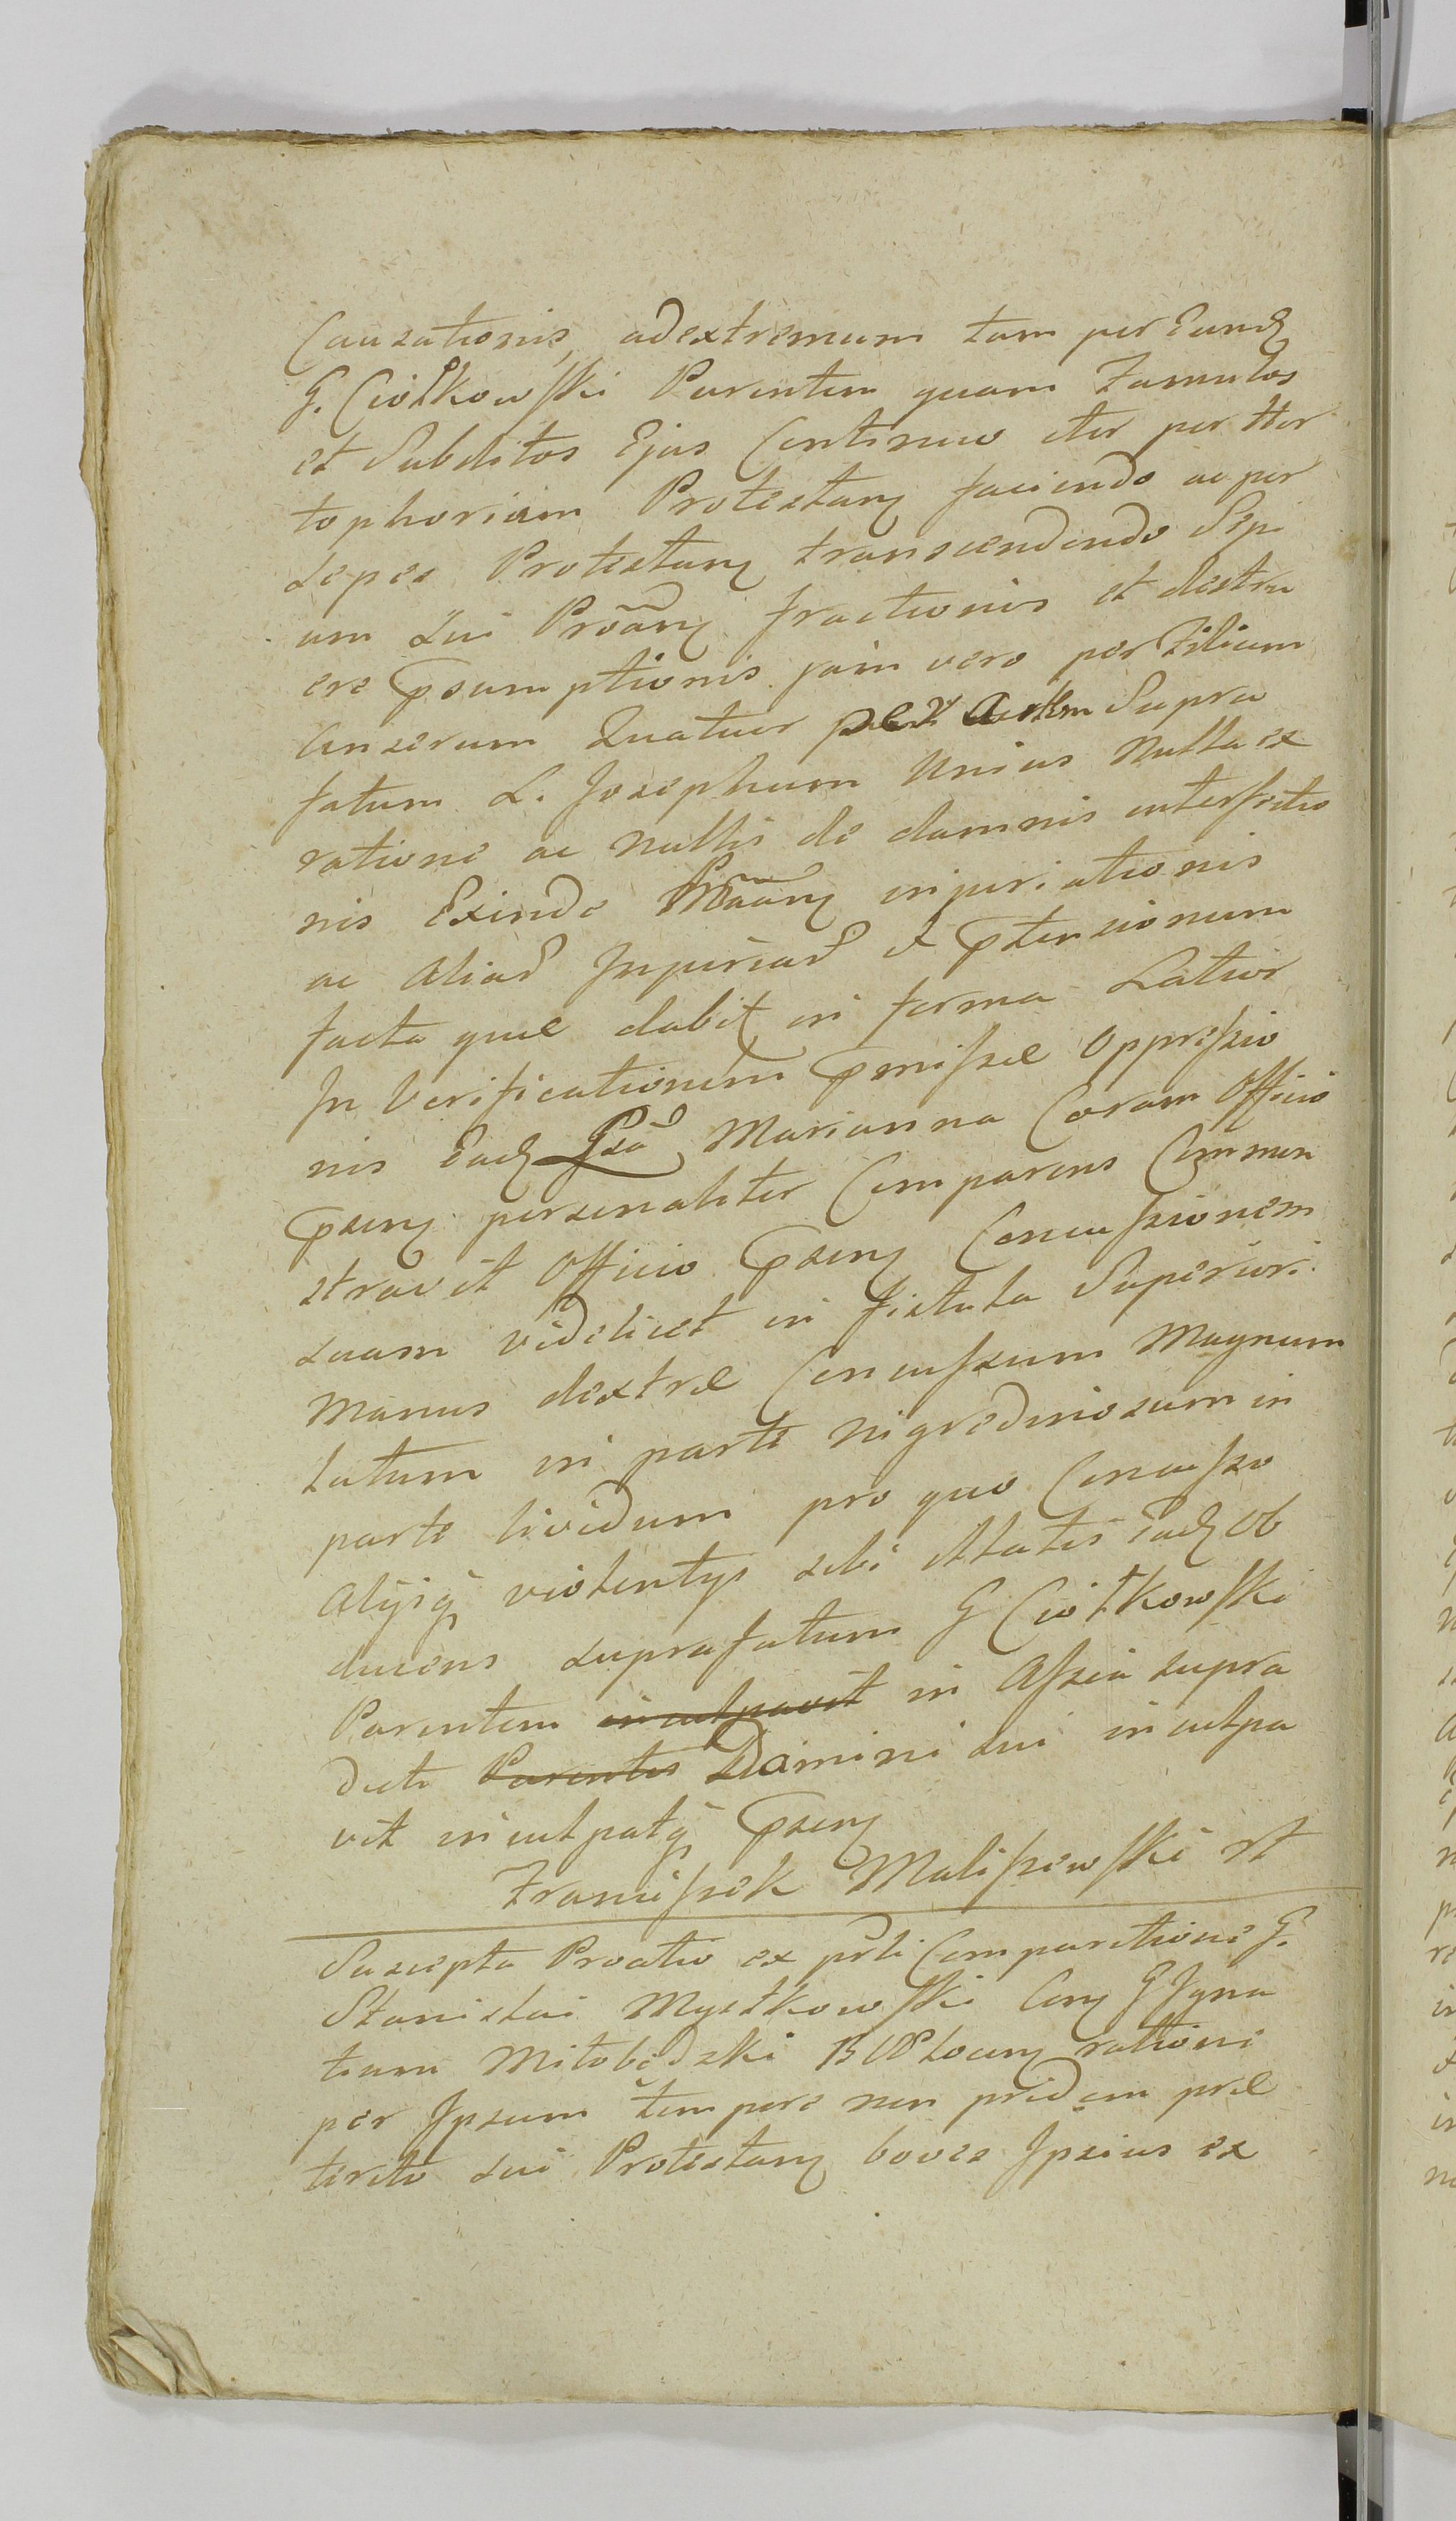 Causationis, ad extremum tam per Eund
G. Ciołkowski Parentem quam Famulos
et Subditos Ejus Continuo iter per Hor
tophoriam Protestan faciendo ac per
sepes Protestan transcendendo Sepi
um sui Proan fractionis et destru
ere psumptionis jam vero per Filium
Anserum Quatuor per Supra
fatum L. Josephum Unius Nulla ex
ratione ac Nullis de damnis interfectio
nis Exinde Proan injuriationis
ac Aliar Injuriar et ptensionum
facta quæ dabit in forma Latior
In Verificationem pmissæ Oppressio
nis Ead Marianna Coram Officio
psen personaliter Comparens Common
stravit Officio psen Concussionem
suam videlicet in fistula Superiori
Manus dextræ Concussum Magnum
latum in parte nigredinosum in
parte lividum pro quo Concusso
Alijsq violentijs sibi illatis Ead Ob
ducens suprafatum G Ciołkowski
Parentem inculpavit in Assia supra
dicti Parentis Domini sui inculpa
vit inculpatq psen
Franciszek Maliszewski
Suscepta Proatio ex prti Comparitione G.
Stanislai Mystkowski Con G Igna
tium Miłobędzki Locum ratione
per Ipsum tempore non pridem præ
terito sui Protestan boves Ipsius ex